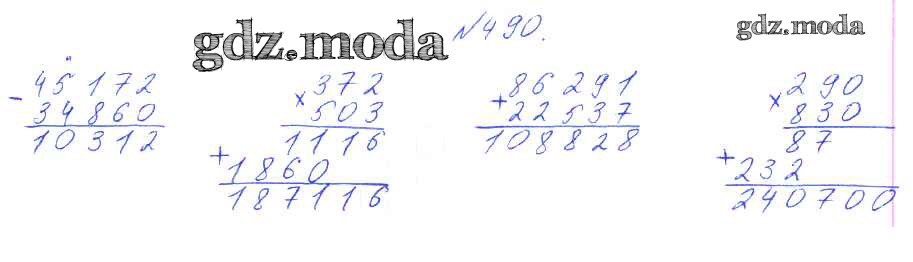 gdz.moda
№490.
gdz.moda
45172
- 34860
10312
372
× 503
1116
+ 1860
187116
86291
+ 22537
108828
290
× 830
87
+ 232
240700